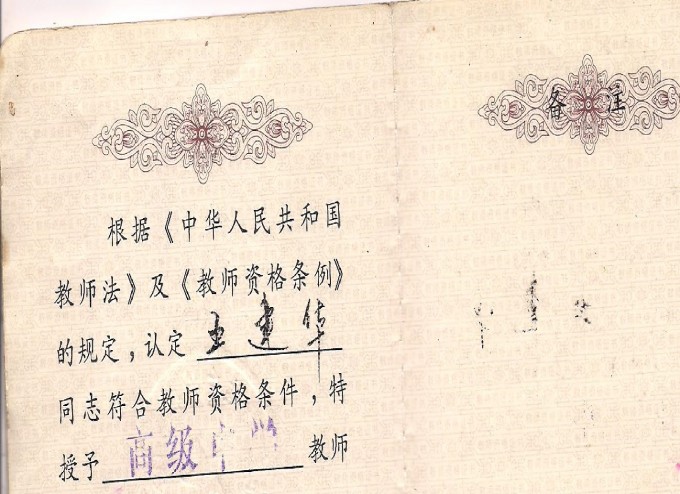 根据《中华人民共和国
教师法》及《教师资格条例》
的规定，认定 王建华
同志符合教师资格条件，特
授予 高级中学 教师
备注